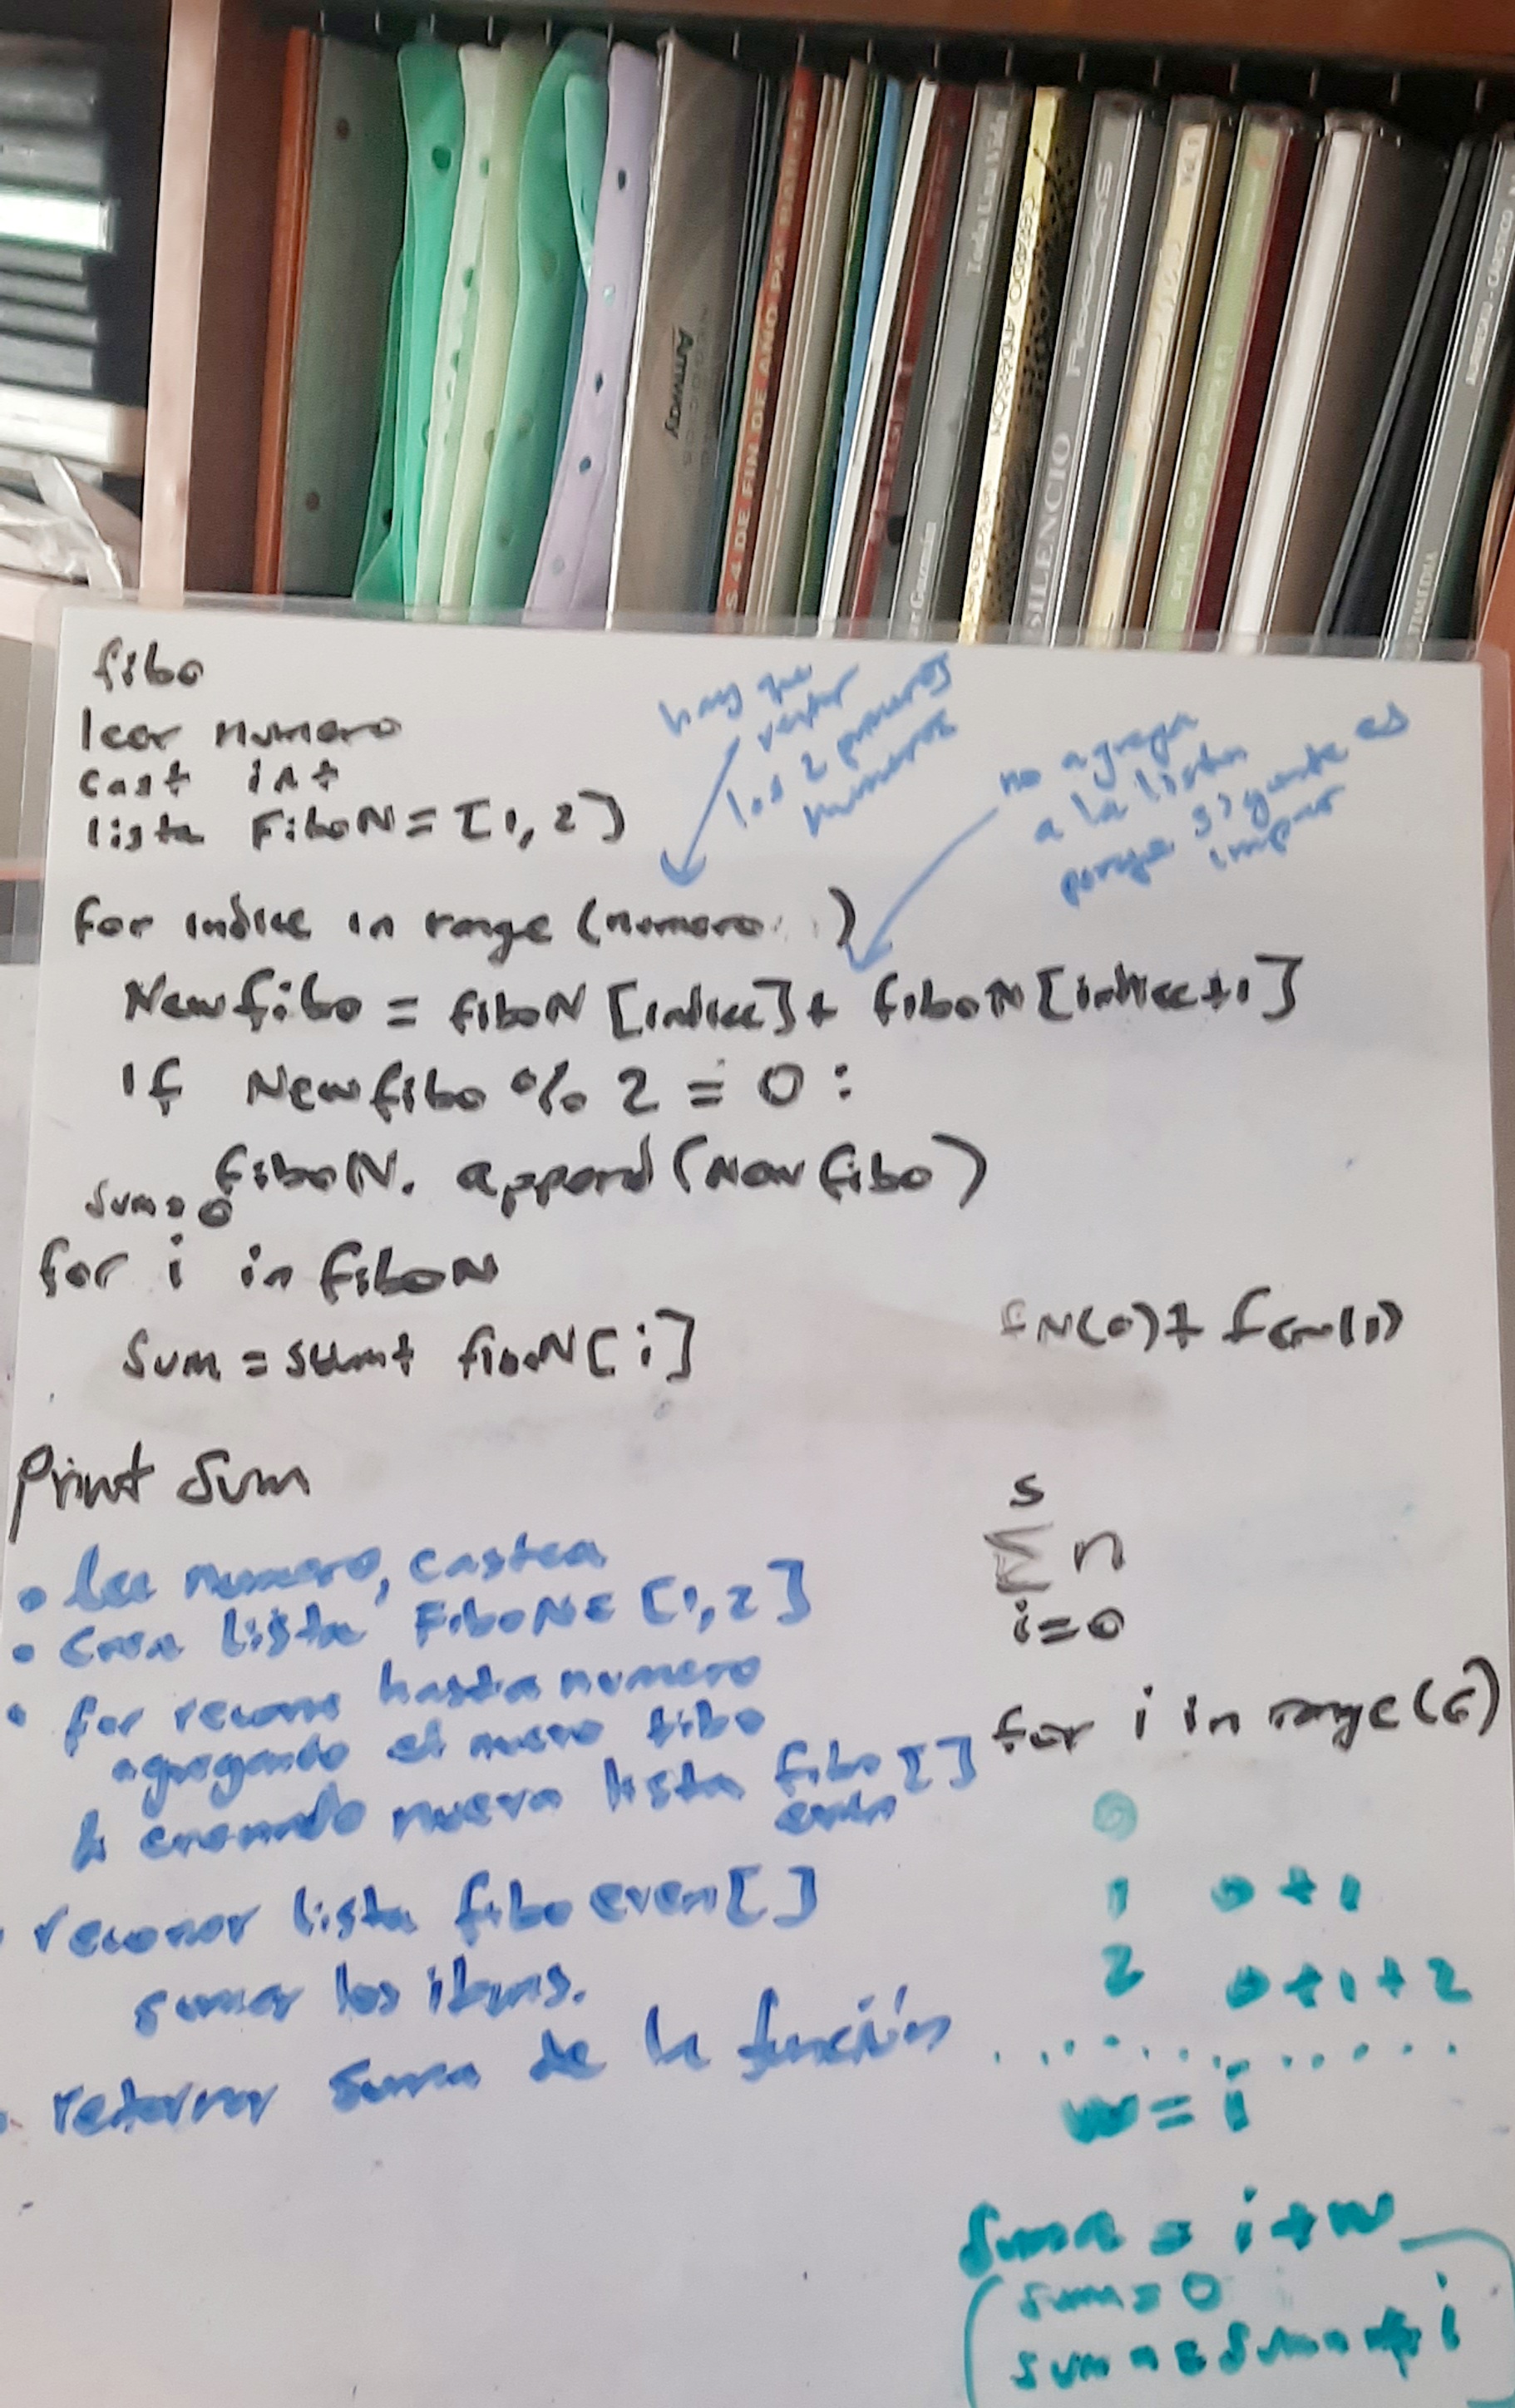 Amway
S.4 DE FIN DE AÑO PA' BAILAR
Toda Una Vida
SILENCIO
VOL 1
fibo
leer numero
cast int
lista FiboN = [1, 2]
hay que
restar
los 2 primeros
numeros
no agrega
a la lista
porque siguiente es
impar
for indice in range (numero )
Newfibo = fiboN [indice] + fiboN [indice+1]
If Newfibo % 2 = 0 :
fiboN. append (Newfibo)
Sum = 0
for i in fiboN
Sum = sum + fiboN [ i ]
Print Sum
• lee numero, castea
• crea lista FiboN = [1, 2]
• for recorre hasta numero
agregando el nuevo fibo
nueva lista fibo [ ]
even
recorrer lista fibo even [ ]
sumar los items.
retornar suma de la función
S
∑ n
i=0
for i in range (6)
0
1 0 + 1
2 0 + 1 + 2
. . . . . . . . . . . .
w = i
Suma = i + w
sum = 0